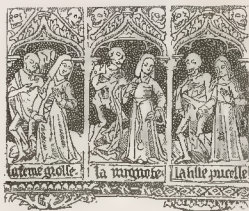 la feme grosse
la mignote
la fille pucelle